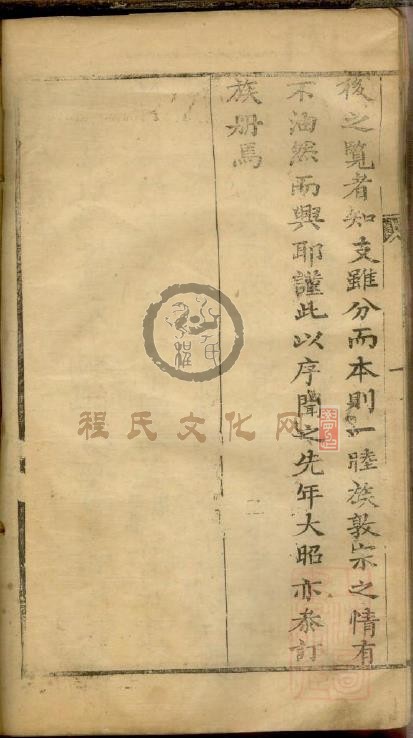 後之覽者知支雖分而本則一睦族敦宗之情有
不油然而興耶謹此以序聞之先年大昭亦叅訂
族册焉
程氏文化网